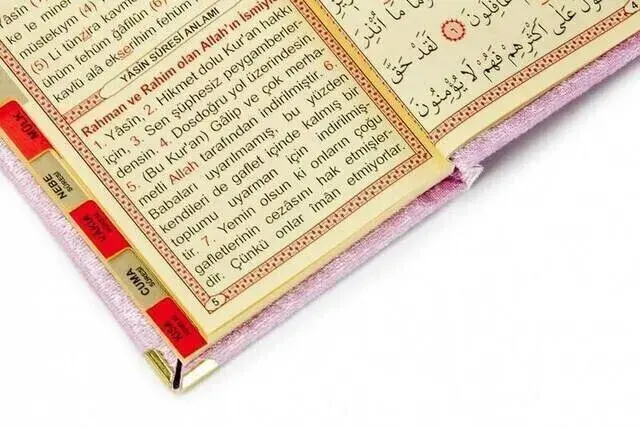 ke le mine
müstekıym (4)
(5) Li tünzira kavmem
ühüm fehüm ğâfilûn (6)
kavlü alâ ekserihim fehüm
YÂSİN SÛRESİ ANLAMI
Rahman ve Rahim olan Allah'ın İsmiyle
1. Yâsîn, 2. Hikmet dolu Kur'an hakkı
için, 3. Sen şüphesiz peygamberler
densin. 4. Dosdoğru yol üzerindesin.
5. (Bu Kur'an) Gâlip ve çok merha-
metli Allah tarafından indirilmiştir. 6.
Babaları uyarılmamış, bu yüzden
kendileri de gaflet içinde kalmış bir
toplumu uyarman için indirilmiş-
tir. 7. Yemin olsun ki onların çoğu
gafletlerinin cezasını hak etmişler-
dir. Çünkü onlar îmân etmiyorlar.
5
MÜLK
NEBE
SÛRESİ
VAKIA
CUMA
SÛRESİ
KISA
مَا أُنْذِرَ
غَافِلُونَ ٦ لَقَدْ حَقَّ
عَلَى أَكْثَرِهِمْ فَهُمْ لَا يُؤْمِنُونَ